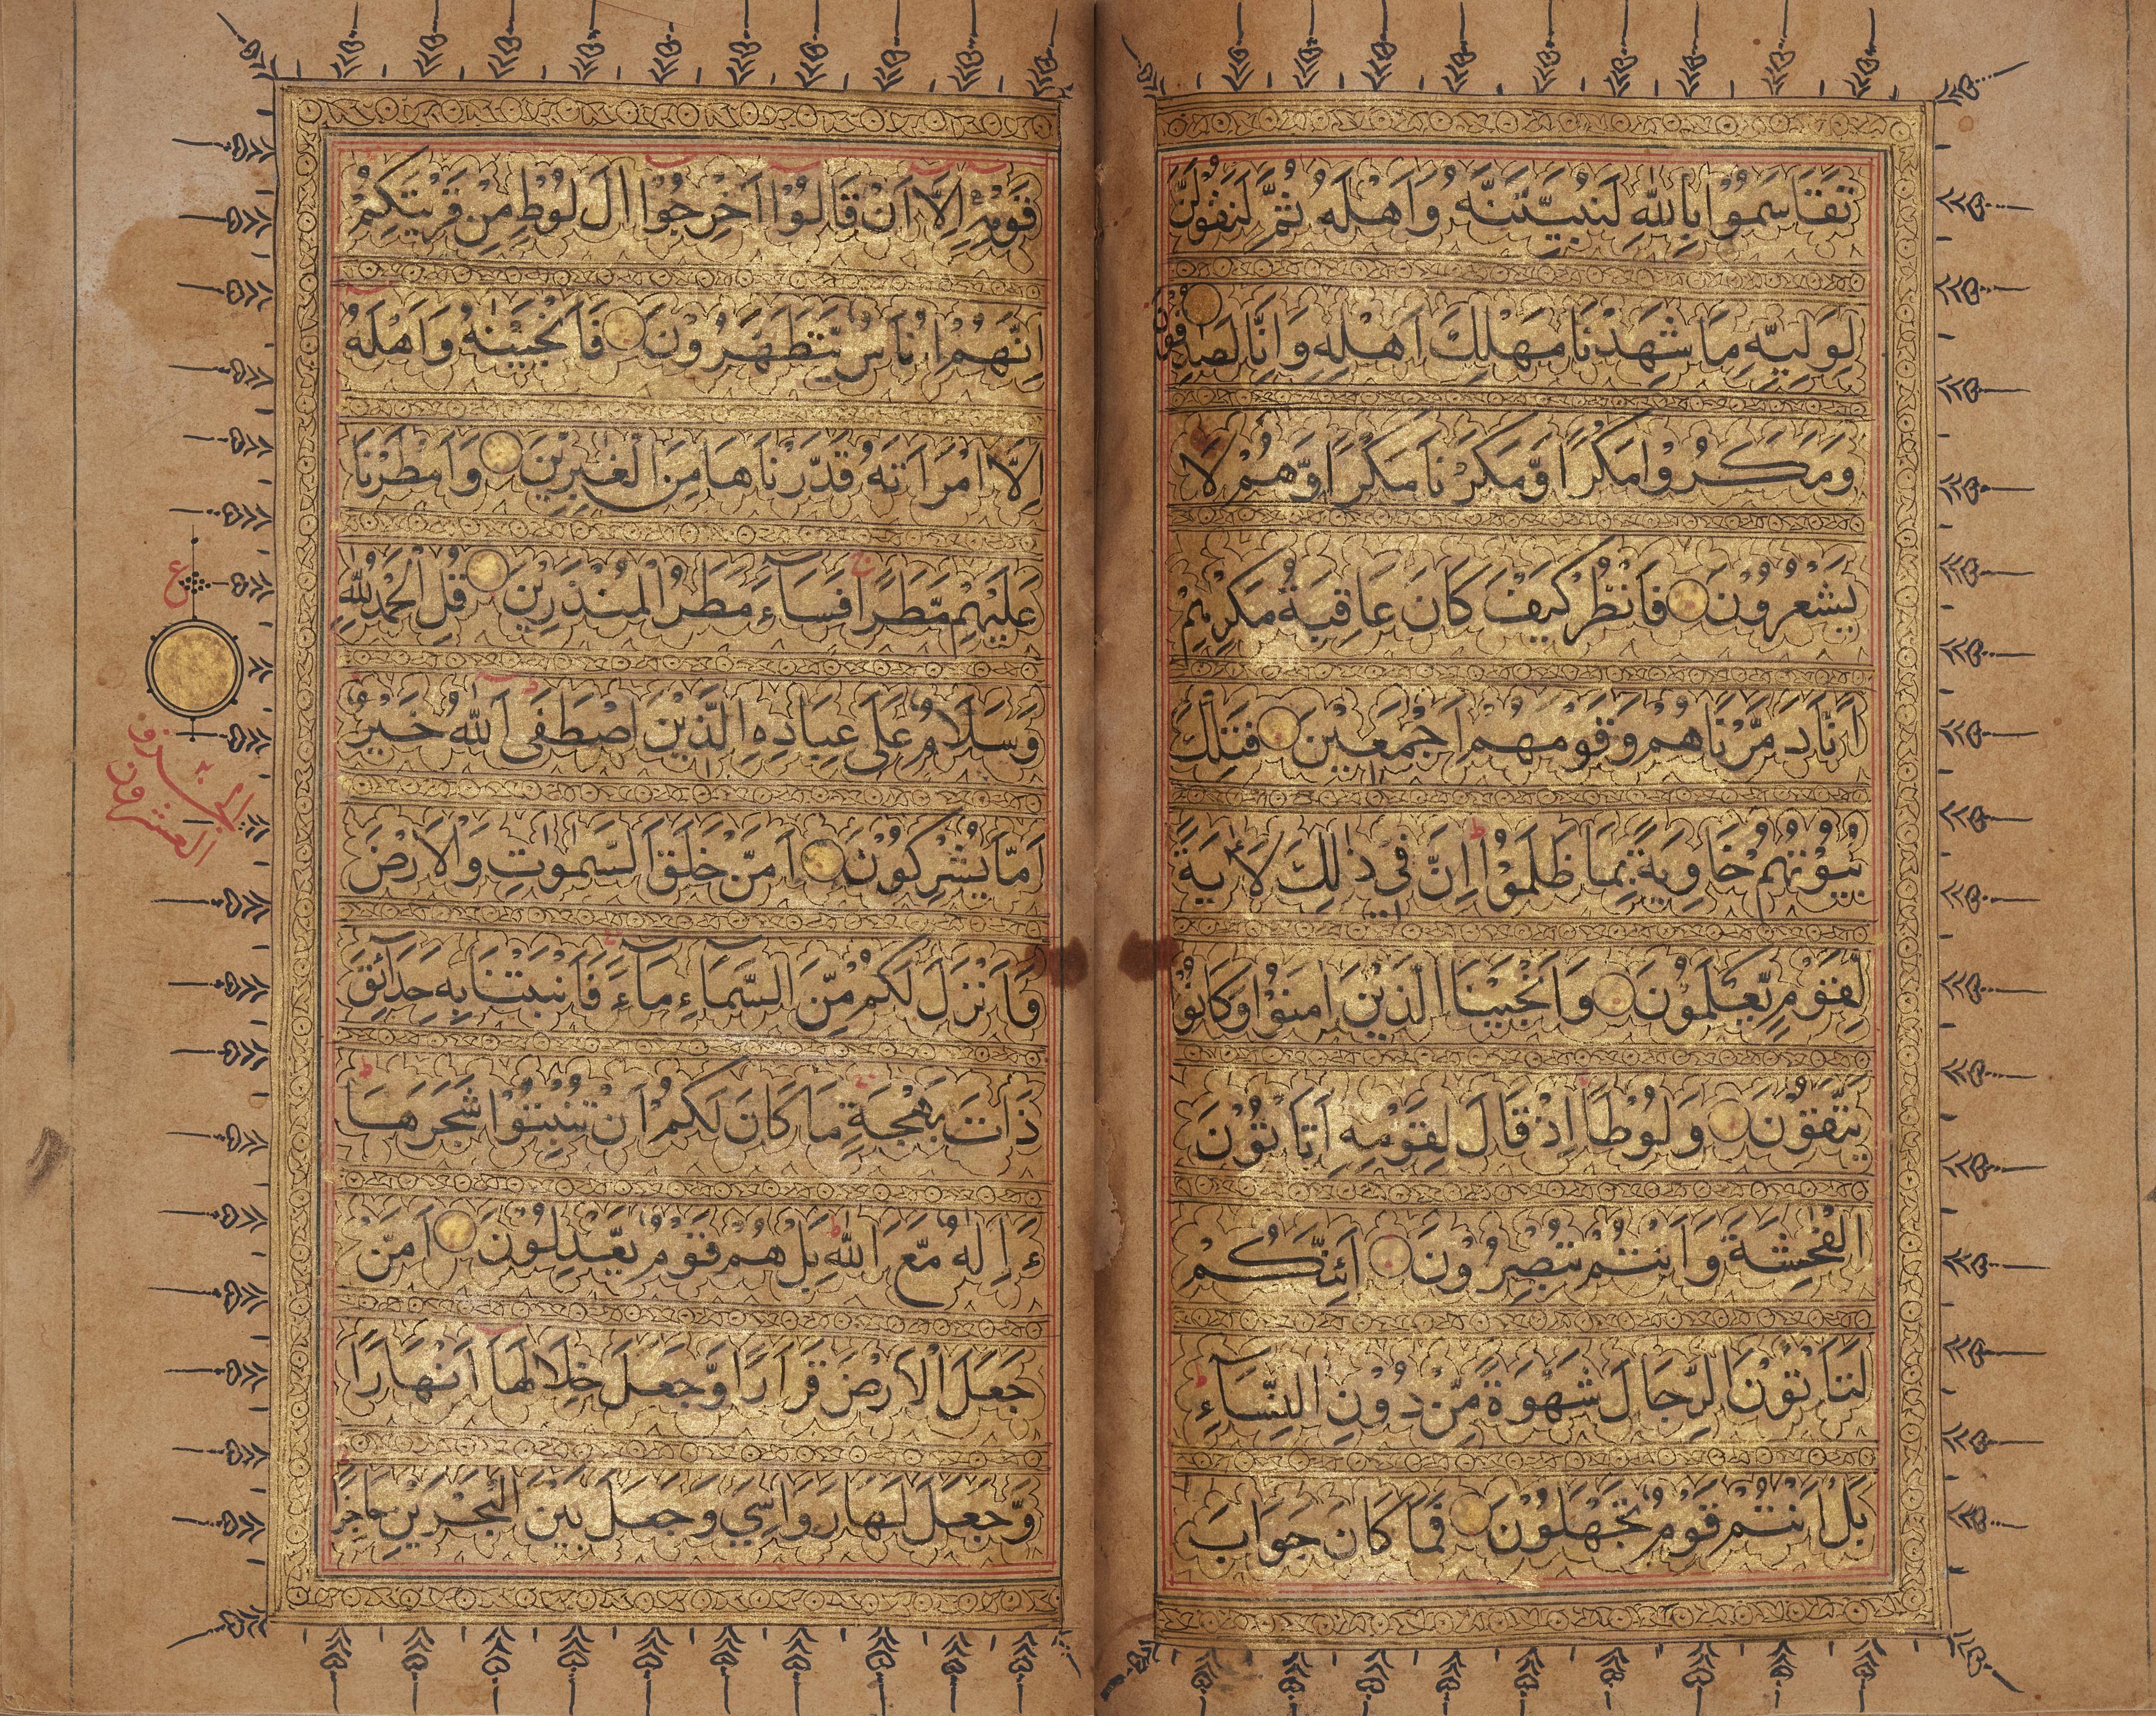 تَقَاسَمُوْا بِاللّٰهِ لَنُبَيِّتَنَّهٗ وَاَهْلَهٗ ثُمَّ لَنَقُوْلَنَّ
لِوَلِيِّهٖ مَا شَهِدْنَا مَهْلِكَ اَهْلِهٖ وَاِنَّا لَصَادِقُوْنَ
وَمَكَرُوْا مَكْرًا وَّمَكَرْنَا مَكْرًا وَّهُمْ لَا
يَشْعُرُوْنَ فَانْظُرْ كَيْفَ كَانَ عَاقِبَةُ مَكْرِهِمْ
اَنَّا دَمَّرْنَاهُمْ وَقَوْمَهُمْ اَجْمَعِيْنَ فَتِلْكَ
بُيُوْتُهُمْ خَاوِيَةً بِمَا ظَلَمُوْا اِنَّ فِيْ ذٰلِكَ لَاٰيَةً
لِّقَوْمٍ يَّعْلَمُوْنَ وَاَنْجَيْنَا الَّذِيْنَ اٰمَنُوْا وَكَانُوْا
يَتَّقُوْنَ وَلُوْطًا اِذْ قَالَ لِقَوْمِهٖ اَتَأْتُوْنَ
الْفٰحِشَةَ وَاَنْتُمْ تُبْصِرُوْنَ اَئِنَّكُمْ
لَتَأْتُوْنَ الرِّجَالَ شَهْوَةً مِّنْ دُوْنِ النِّسَآءِ
بَلْ اَنْتُمْ قَوْمٌ تَجْهَلُوْنَ فَمَا كَانَ جَوَابَ
قَوْمِهٖ اِلَّا اَنْ قَالُوْا اَخْرِجُوْا اٰلَ لُوْطٍ مِنْ قَرْيَتِكُمْ
اِنَّهُمْ اُنَاسٌ يَّتَطَهَّرُوْنَ فَاَنْجَيْنٰهُ وَاَهْلَهٗ
اِلَّا امْرَاَتَهٗ قَدَّرْنَاهَا مِنَ الْغٰبِرِيْنَ وَاَمْطَرْنَا
عَلَيْهِمْ مَّطَرًا فَسَآءَ مَطَرُ الْمُنْذَرِيْنَ قُلِ الْحَمْدُ لِلّٰهِ
وَسَلَامٌ عَلٰى عِبَادِهِ الَّذِيْنَ اصْطَفٰى آللّٰهُ خَيْرٌ
اَمَّا يُشْرِكُوْنَ اَمَّنْ خَلَقَ السَّمٰوٰتِ وَالْاَرْضَ
وَاَنْزَلَ لَكُمْ مِّنَ السَّمَآءِ مَآءً فَاَنْبَتْنَا بِهٖ حَدَآئِقَ
ذَاتَ بَهْجَةٍ مَا كَانَ لَكُمْ اَنْ تُنْبِتُوْا شَجَرَهَا
ءَاِلٰهٌ مَّعَ اللّٰهِ بَلْ هُمْ قَوْمٌ يَّعْدِلُوْنَ اَمَّنْ
جَعَلَ الْاَرْضَ قَرَارًا وَّجَعَلَ خِلَالَهَا اَنْهَارًا
وَّجَعَلَ لَهَا رَوَاسِيَ وَجَعَلَ بَيْنَ الْبَحْرَيْنِ حَاجِزًا
ع